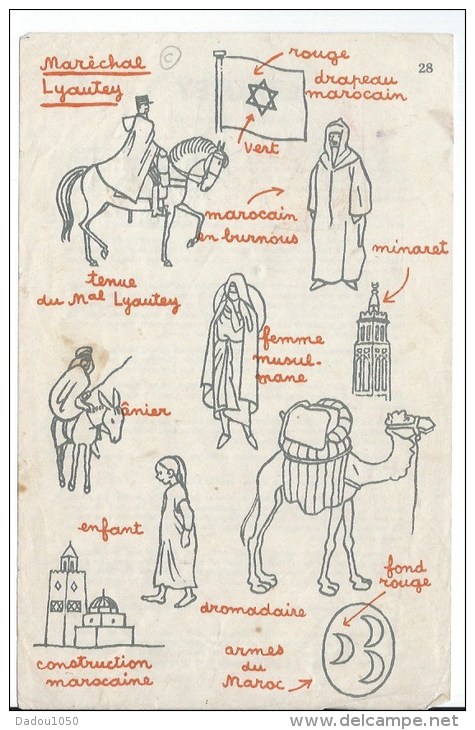 Marèchal
Lyautey
©
28
rouge
drapeau
marocain
vert
marocain
en burnous
minaret
tenue
du Mal Lyautey
femme
musul-
mane
ânier
enfant
dromadaire
fond
rouge
construction
marocaine
armes
du
Maroc
Dadou1050
www.delcampe.net